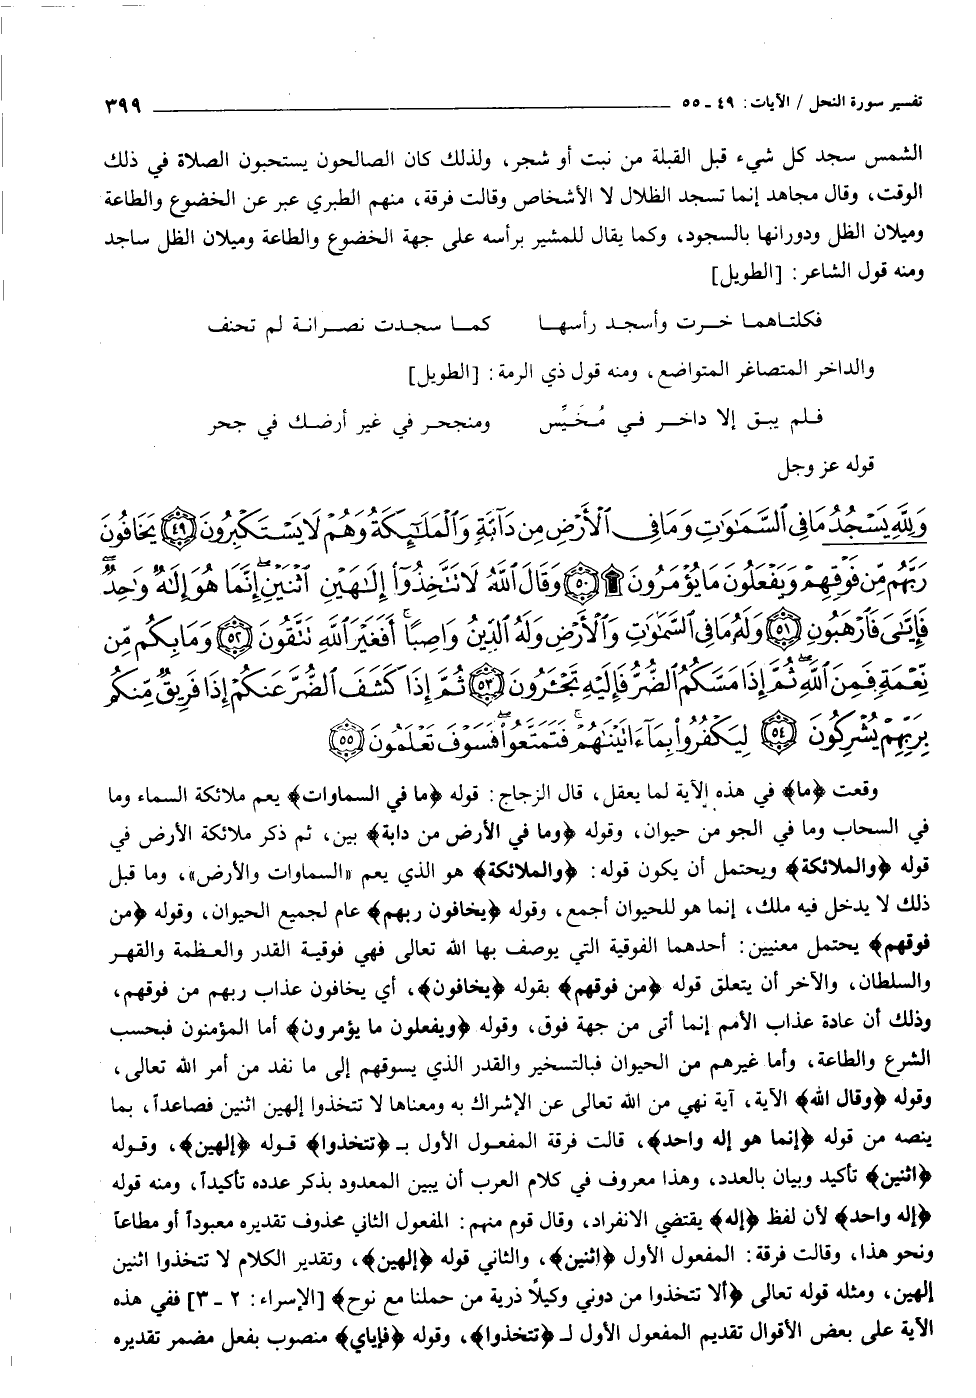 تفسير سورة النحل / الآيات: ٤٩ ـ ٥٥ ٣٩٩
الشمس سجد كل شيء قبل القبلة من نبت أو شجر، ولذلك كان الصالحون يستحبون الصلاة في ذلك
الوقت، وقال مجاهد إنما تسجد الظلال لا الأشخاص وقالت فرقة، منهم الطبري عبر عن الخضوع والطاعة
وميلان الظل ودورانها بالسجود، وكما يقال للمشير برأسه على جهة الخضوع والطاعة وميلان الظل ساجد
ومنه قول الشاعر: [الطويل]
فكلتاهما خرت وأسجد رأسها كما سجدت نصرانة لم تحنف
والداخر المتصاغر المتواضع، ومنه قول ذي الرمة: [الطويل]
فلم يبق إلا داخر في مُخَيِّس ومنجحر في غير أرضك في جحر
قوله عز وجل
وَلِلَّهِ يَسْجُدُ مَا فِي السَّمَٰوَٰتِ وَمَا فِي الْأَرْضِ مِن دَآبَّةٍ وَالْمَلَٰٓئِكَةُ وَهُمْ لَا يَسْتَكْبِرُونَ ٤٩ يَخَافُونَ
رَبَّهُم مِّن فَوْقِهِمْ وَيَفْعَلُونَ مَا يُؤْمَرُونَ ۩ ٥٠ وَقَالَ اللَّهُ لَا تَتَّخِذُوٓا۟ إِلَٰهَيْنِ اثْنَيْنِ ۖ إِنَّمَا هُوَ إِلَٰهٌ وَٰحِدٌ ۖ
فَإِيَّٰىَ فَارْهَبُونِ ٥١ وَلَهُ مَا فِي السَّمَٰوَٰتِ وَالْأَرْضِ وَلَهُ الدِّينُ وَاصِبًا ۚ أَفَغَيْرَ اللَّهِ تَتَّقُونَ ٥٢ وَمَا بِكُم مِّن
نِّعْمَةٍ فَمِنَ اللَّهِ ۖ ثُمَّ إِذَا مَسَّكُمُ الضُّرُّ فَإِلَيْهِ تَجْـَٔرُونَ ٥٣ ثُمَّ إِذَا كَشَفَ الضُّرَّ عَنكُمْ إِذَا فَرِيقٌ مِّنكُم
بِرَبِّهِمْ يُشْرِكُونَ ٥٤ لِيَكْفُرُوا۟ بِمَآ ءَاتَيْنَٰهُمْ ۚ فَتَمَتَّعُوا۟ ۖ فَسَوْفَ تَعْلَمُونَ ٥٥
وقعت ﴿ما﴾ في هذه الآية لما يعقل، قال الزجاج: قوله ﴿ما في السماوات﴾ يعم ملائكة السماء وما
في السحاب وما في الجو من حيوان، وقوله ﴿وما في الأرض من دابة﴾ بين، ثم ذكر ملائكة الأرض في
قوله ﴿والملائكة﴾ ويحتمل أن يكون قوله: ﴿والملائكة﴾ هو الذي يعم «السماوات والأرض»، وما قبل
ذلك لا يدخل فيه ملك، إنما هو للحيوان أجمع، وقوله ﴿يخافون ربهم﴾ عام لجميع الحيوان، وقوله ﴿من
فوقهم﴾ يحتمل معنيين: أحدهما الفوقية التي يوصف بها الله تعالى فهي فوقية القدر والعظمة والقهر
والسلطان، والآخر أن يتعلق قوله ﴿من فوقهم﴾ بقوله ﴿يخافون﴾، أي يخافون عذاب ربهم من فوقهم،
وذلك أن عادة عذاب الأمم إنما أتى من جهة فوق، وقوله ﴿ويفعلون ما يؤمرون﴾ أما المؤمنون فبحسب
الشرع والطاعة، وأما غيرهم من الحيوان فبالتسخير والقدر الذي يسوقهم إلى ما نفد من أمر الله تعالى،
وقوله ﴿وقال الله﴾ الآية، آية نهي من الله تعالى عن الإشراك به ومعناها لا تتخذوا إلهين اثنين فصاعداً، بما
ينصه من قوله ﴿إنما هو إله واحد﴾، قالت فرقة المفعول الأول بـ ﴿تتخذوا﴾ قوله ﴿إلهين﴾، وقوله
﴿اثنين﴾ تأكيد وبيان بالعدد، وهذا معروف في كلام العرب أن يبين المعدود بذكر عدده تأكيداً، ومنه قوله
﴿إله واحد﴾ لأن لفظ ﴿إله﴾ يقتضي الانفراد، وقال قوم منهم: المفعول الثاني محذوف تقديره معبوداً أو مطاعاً
ونحو هذا، وقالت فرقة: المفعول الأول ﴿اثنين﴾، والثاني قوله ﴿إلهين﴾، وتقدير الكلام لا تتخذوا اثنين
إلهين، ومثله قوله تعالى ﴿ألا تتخذوا من دوني وكيلاً ذرية من حملنا مع نوح﴾ [الإسراء: ٢ ـ ٣] ففي هذه
الآية على بعض الأقوال تقديم المفعول الأول لـ ﴿تتخذوا﴾، وقوله ﴿فإياي﴾ منصوب بفعل مضمر تقديره